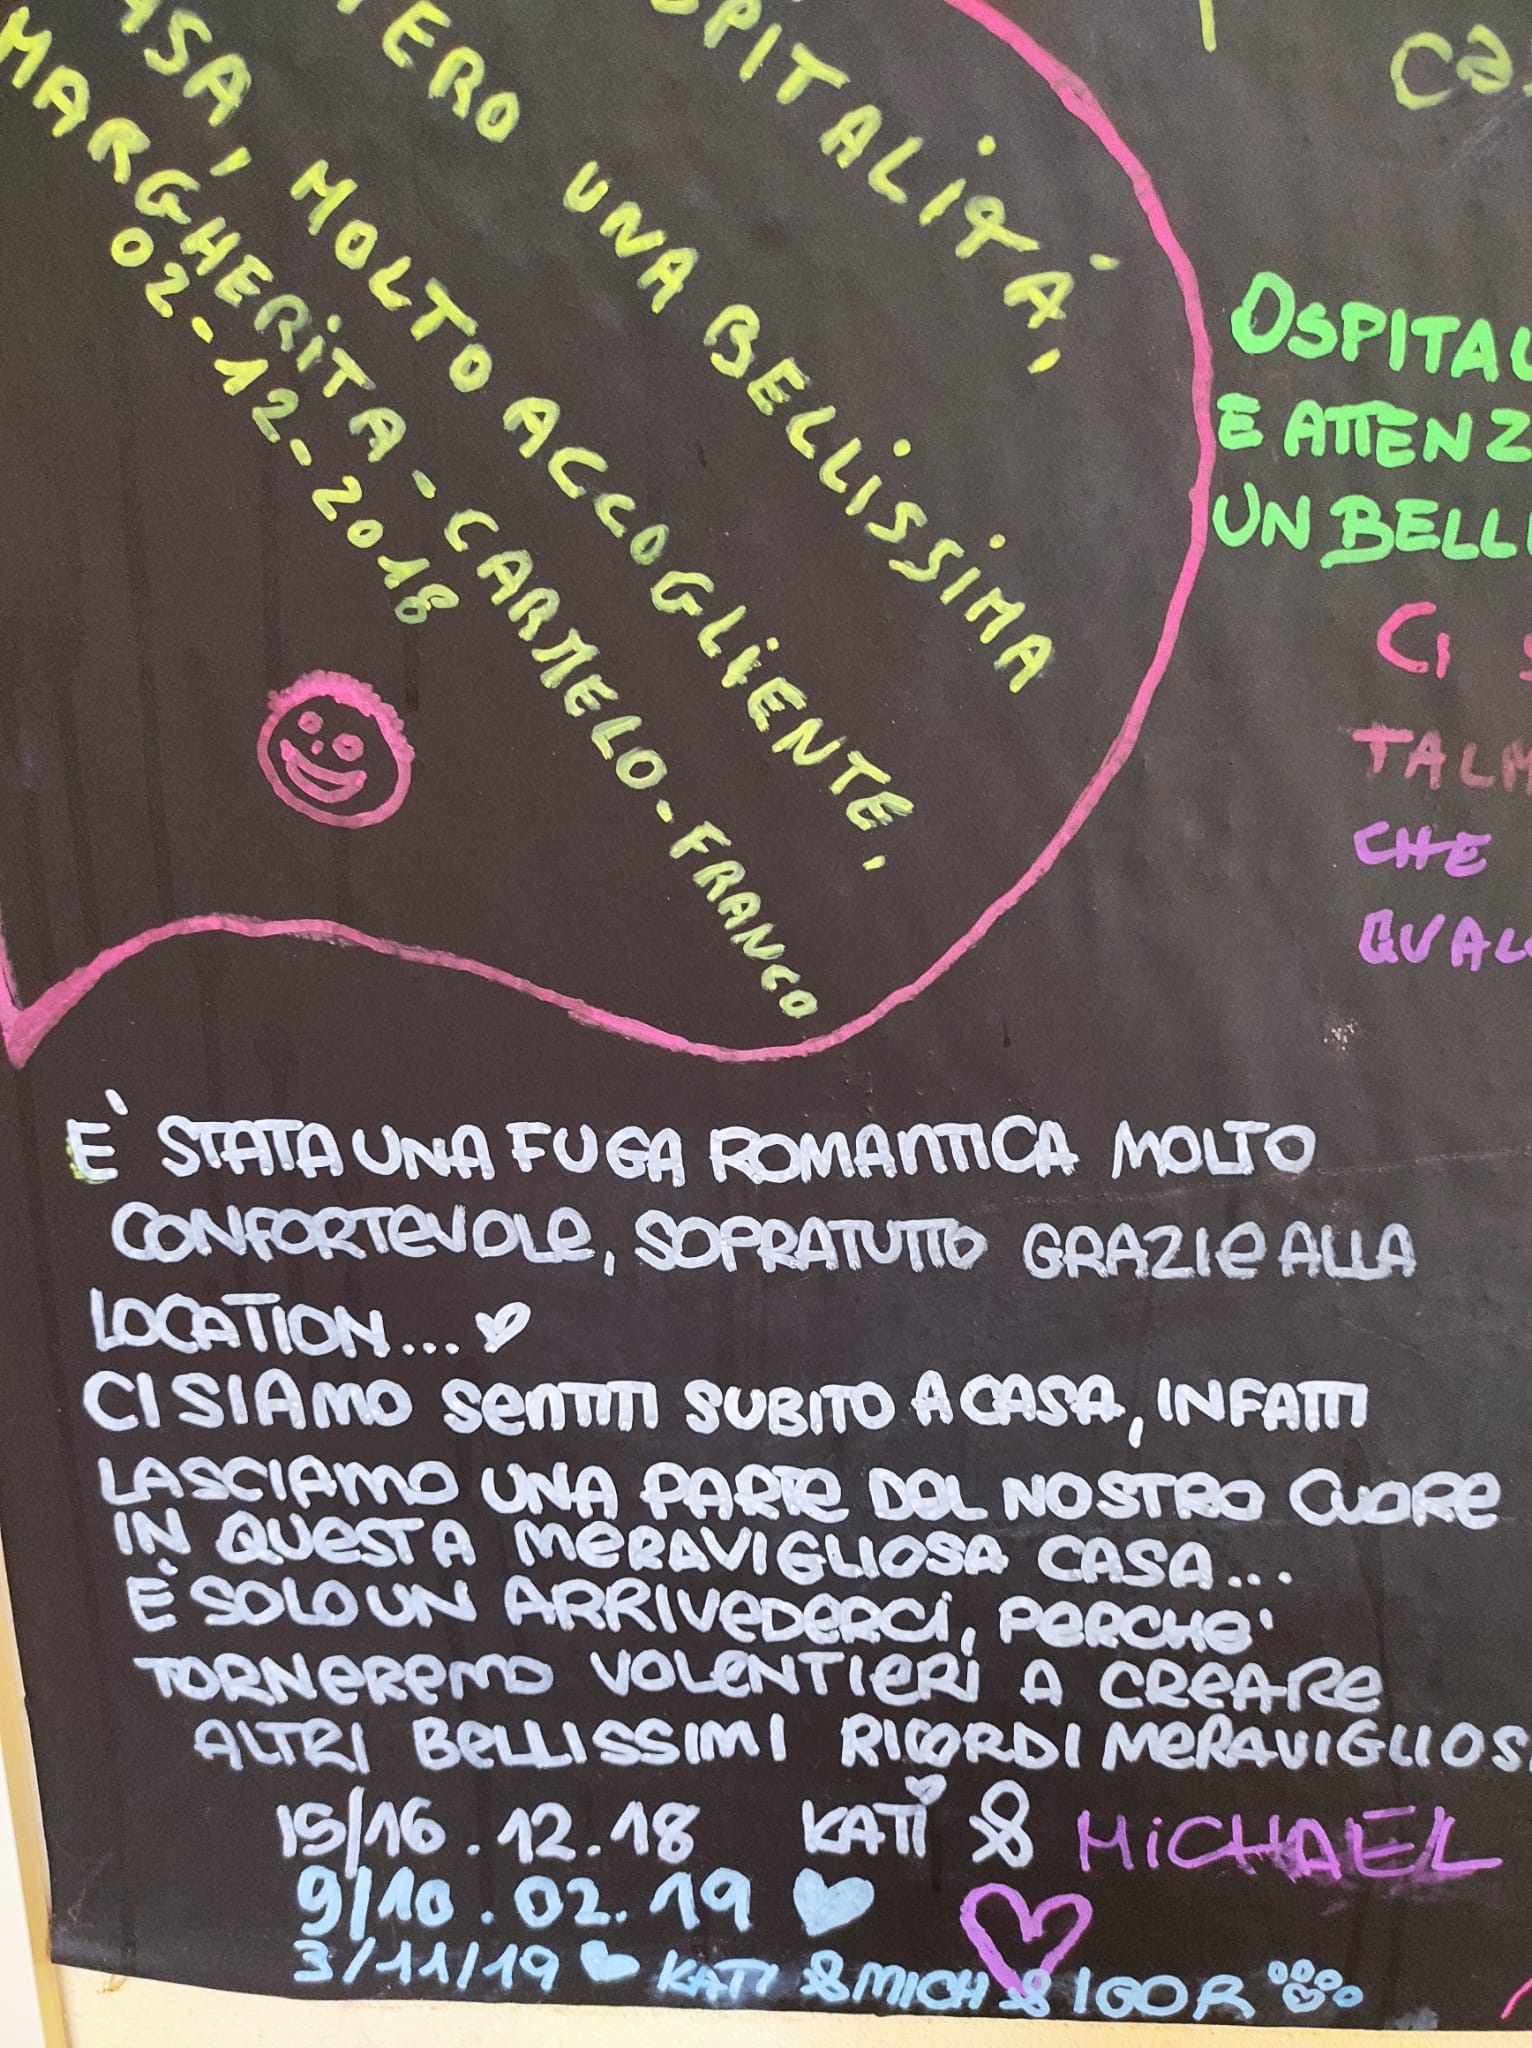 OSPITALITÀ,
UNA BELLISSIMA
CASA, MOLTO ACCOGLIENTE,
MARGHERITA - CARMELO - FRANCO
02-12-2018
E ATTENZ
UN BELL
CI
CHE
È STATA UNA FUGA ROMANTICA MOLTO
CONFORTEVOLE, SOPRATUTTO GRAZIE ALLA
LOCATION...
CI SIAMO SENTITI SUBITO A CASA, INFATTI
LASCIAMO UNA PARTE DEL NOSTRO CUORE
IN QUESTA MERAVIGLIOSA CASA...
È SOLO UN ARRIVEDERCI, PERCHE'
TORNEREMO VOLENTIERI A CREARE
ALTRI BELLISSIMI RICORDI MERAVIGLIOSI
15/16.12.18 KATI & MiCHAEL
9/10.02.19
3/11/19 KATI & MICH & IGOR